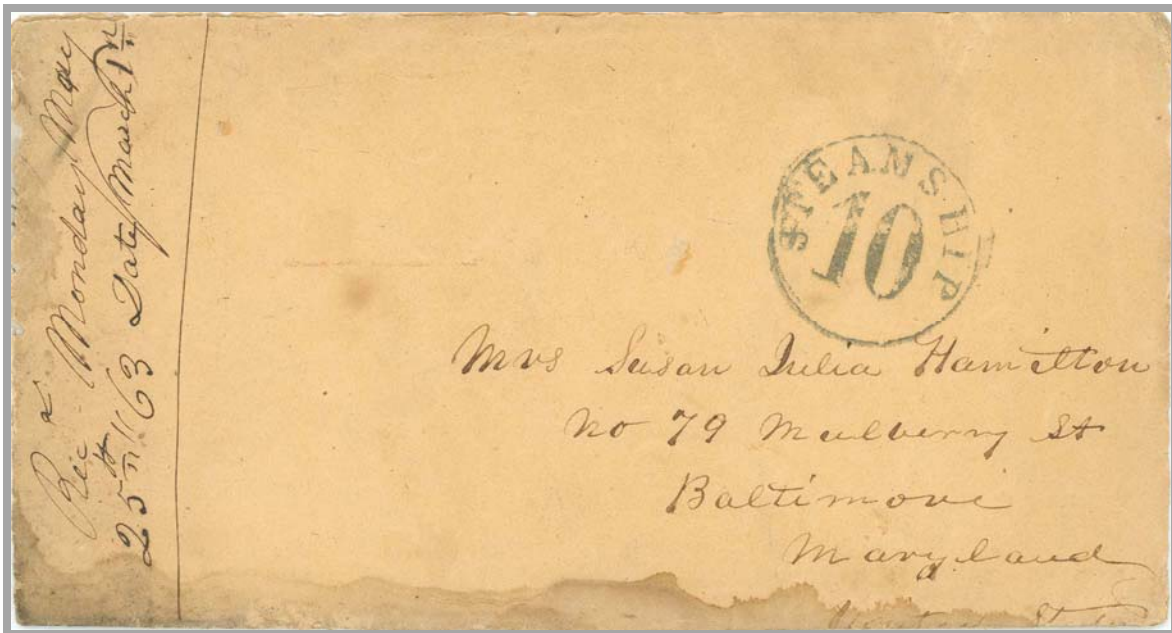 Rec^d Monday May
25th "63 Date March 1st
STEAMSHIP
10
Mrs Susan Julia Hamilton
No 79 Mulberry St
Baltimore
Maryland